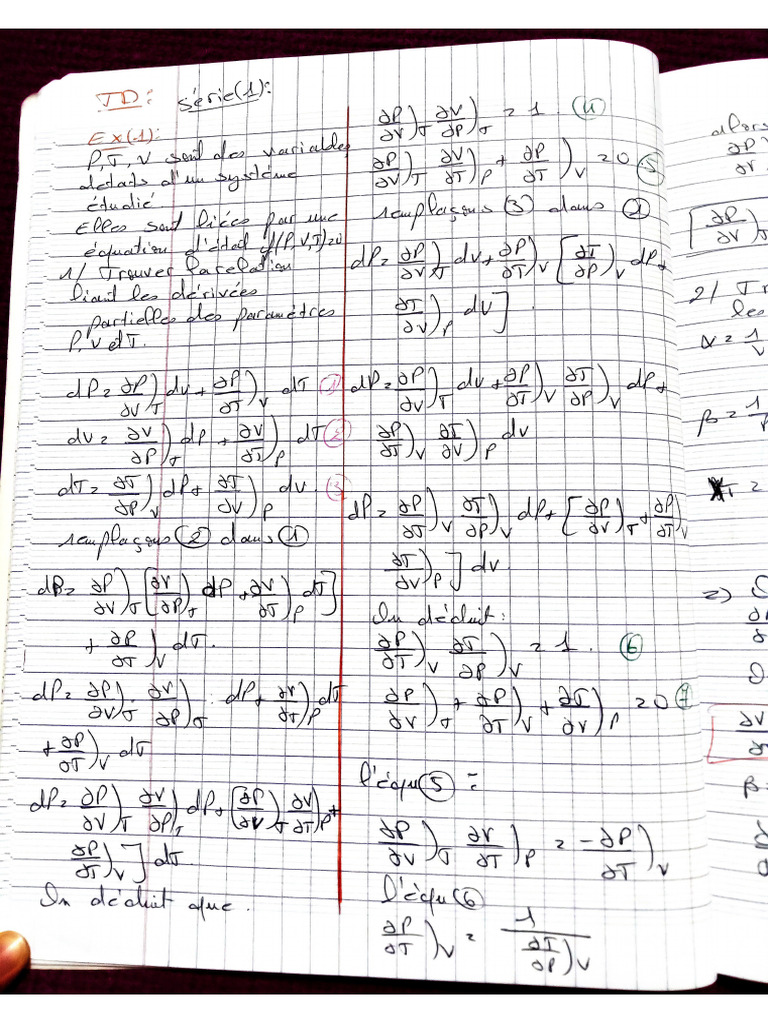 TD: série(1):
Ex(1):
P, T, V sont des variables
d'états d'un système
étudié.
Elles sont liées par une
équation d'état f(P,V,T)=0
1/ Trouver la relation
liant les dérivées
partielles des paramètres
P, V et T.
dP = ∂P/∂V)T dV + ∂P/∂T)V dT (1)
dV = ∂V/∂P)T dP + ∂V/∂T)P dT (2)
dT = ∂T/∂P)V dP + ∂T/∂V)P dV. (3)
remplaçons (2) dans (1)
dP = ∂P/∂V)T [∂V/∂P)T dP + ∂V/∂T)P dT]
+ ∂P/∂T)V dT.
dP = ∂P/∂V)T . ∂V/∂P)T . dP + ∂V/∂T)P dT
+ ∂P/∂T)V dT
dP = ∂P/∂V)T ∂V/∂P)T dP + [∂P/∂V)T ∂V/∂T)P +
∂P/∂T)V] dT.
On déduit que.
∂P/∂V)T ∂V/∂P)T = 1. (4)
∂P/∂V)T ∂V/∂T)P + ∂P/∂T)V = 0 (5)
remplaçons (3) dans (1)
dP = ∂P/∂V)T dV + ∂P/∂T)V [∂T/∂P)V dP +
∂T/∂V)P dV].
dP = ∂P/∂V)T dV + ∂P/∂T)V ∂T/∂P)V dP +
∂P/∂T)V ∂T/∂V)P dV
dP = ∂P/∂T)V ∂T/∂P)V dP + [∂P/∂V)T + ∂P/∂T)V
∂T/∂V)P] dV.
On déduit:
∂P/∂T)V ∂T/∂P)V = 1. (6)
∂P/∂V)T + ∂P/∂T)V + ∂T/∂V)P = 0 (7)
l'équ (5) =
∂P/∂V)T ∂V/∂T)P = -∂P/∂T)V
l'équ (6)
∂P/∂T)V = 1/∂T/∂P)V
alors
2/